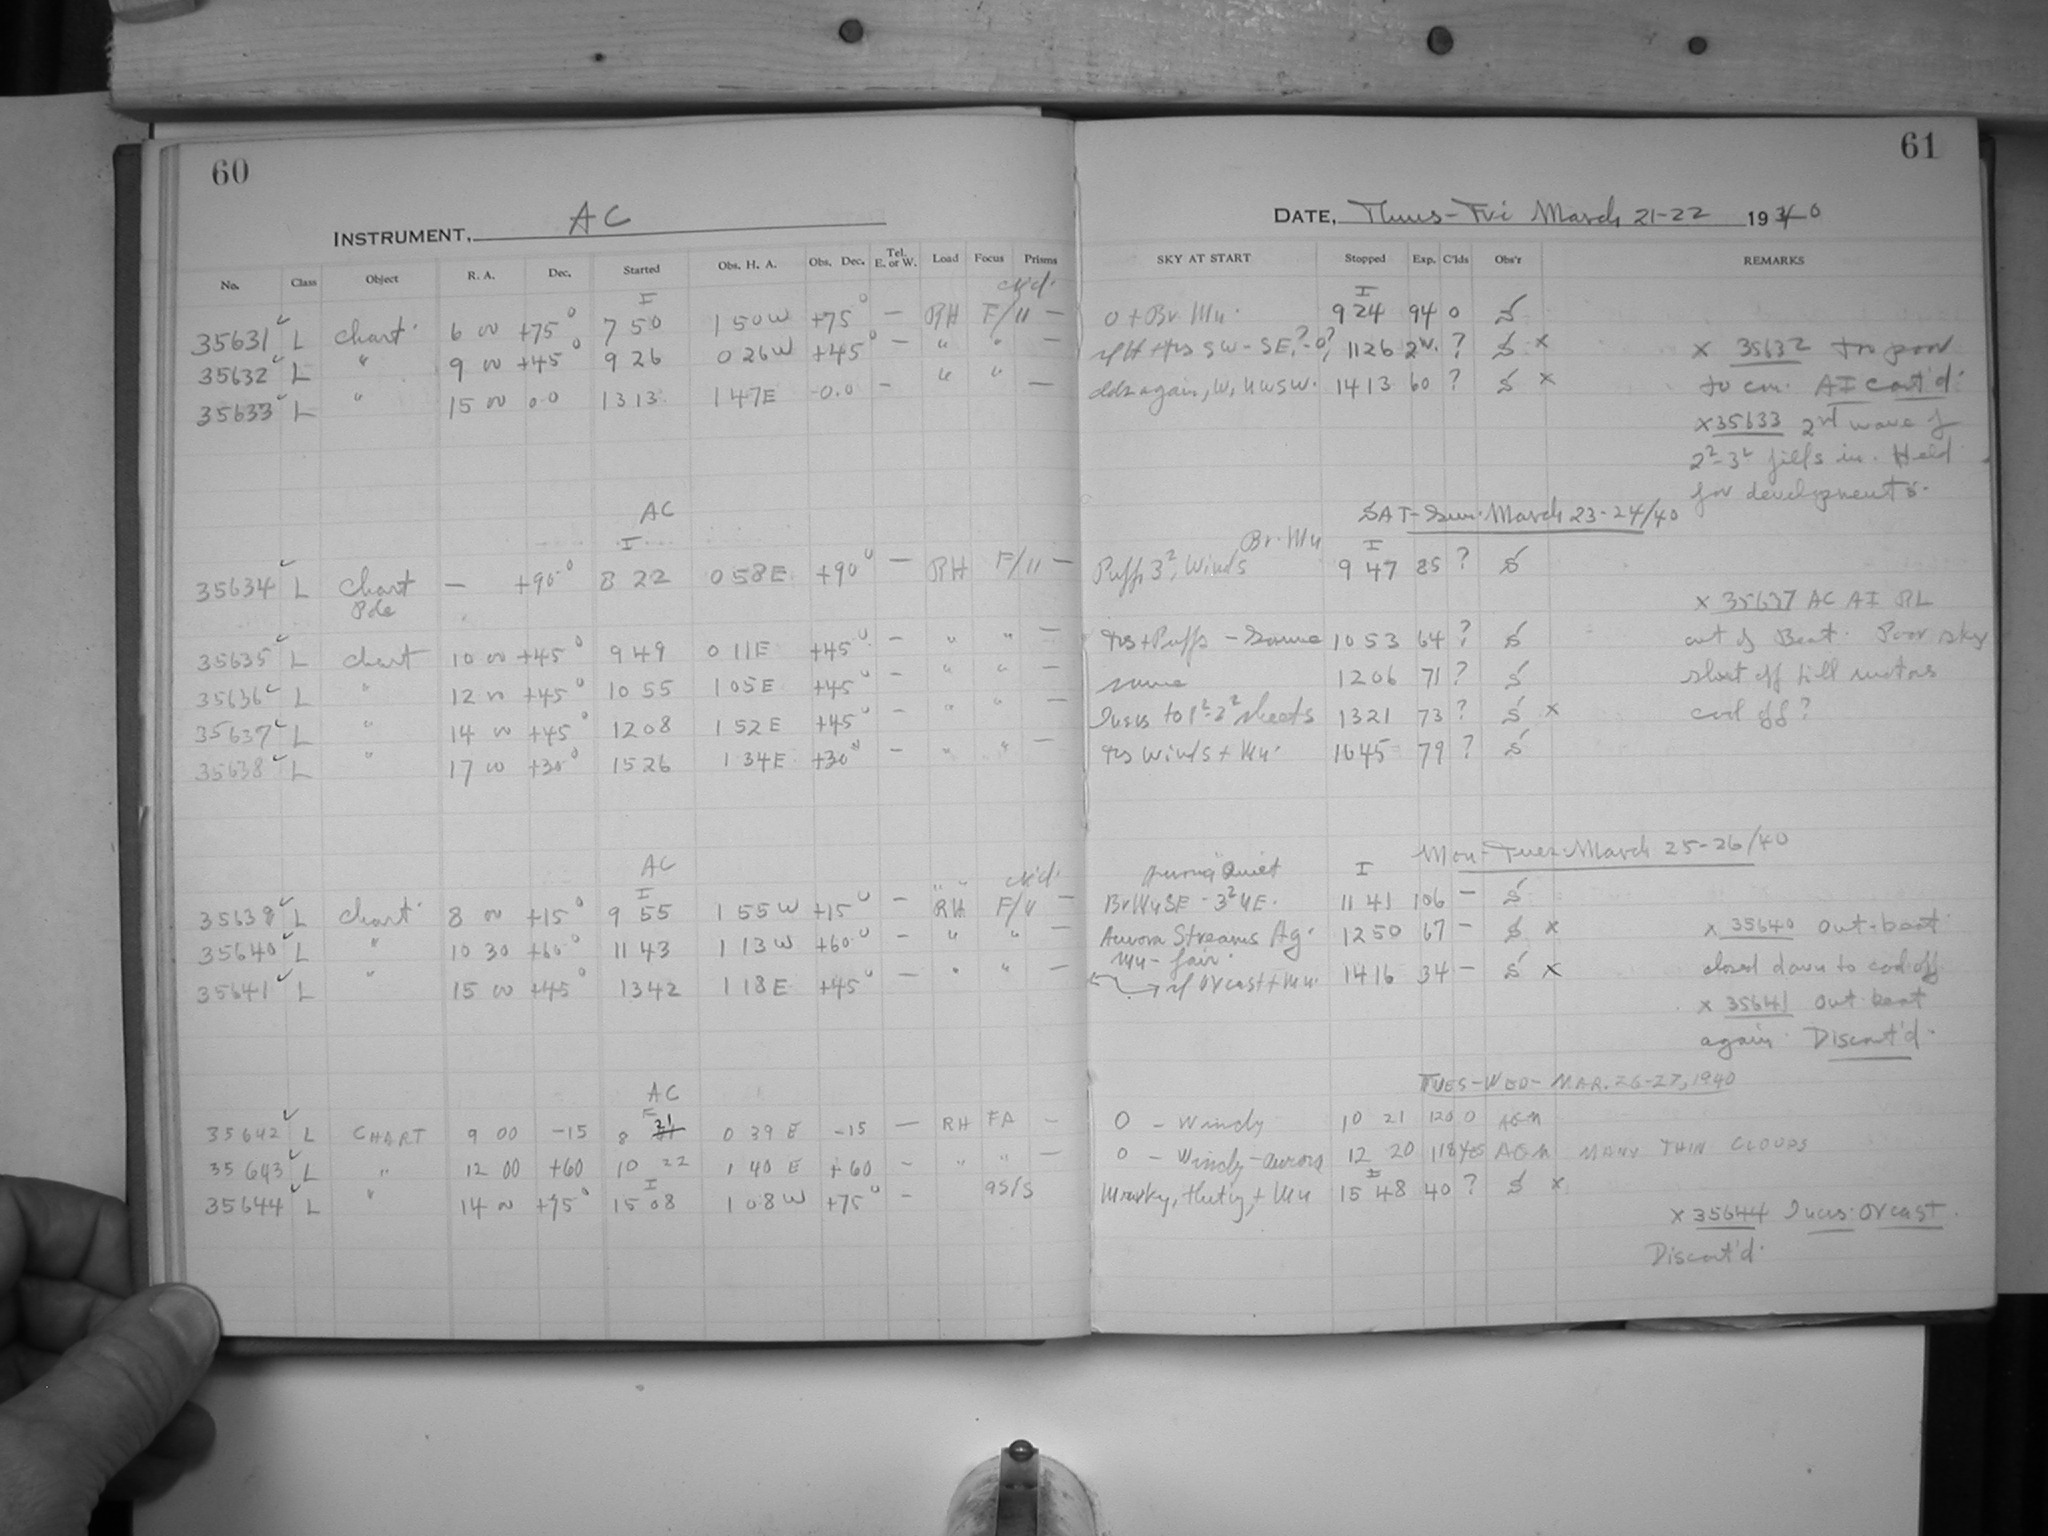 60
INSTRUMENT, AC
No. Class Object R. A. Dec. Started Obs. H. A. Obs. Dec. Tel. E. or W. Load Focus Prisms
I
35631 L Chart 6 00 +75° 7 50 1 50W +75° — RH F/11 —
35632 L " 9 00 +45° 9 26 0 26W +45° — " " —
35633 L " 15 00 00 13 13 1 47E -0.0 — " " —
AC
I
35634 L Chart — +90° 8 22 0 58E +90° — RH F/11 —
Pole
35635 L Chart 10 00 +45° 9 49 0 11E +45° — " " —
35636 L " 12 00 +45° 10 55 1 05E +45° — " " —
35637 L " 14 00 +45° 12 08 1 52E +45° — " " —
35638 L " 17 00 +30° 15 26 1 34E +30° — " " —
AC
I
35639 L Chart 8 00 +15° 9 55 1 55W +15° — RH F/11 —
35640 L " 10 30 +60° 11 43 1 13W +60° — " " —
35641 L " 15 00 +45° 13 42 1 18E +45° — " " —
AC
35642 L CHART 9 00 -15 8 21 0 39 E -15 — RH FA —
35643 L " 12 00 +60 10 22 1 40 E +60 — " " —
I
35644 L " 14 00 +75° 15 08 1 08W +75° —
61
DATE, Thurs-Fri March 21-22 1940
SKY AT START Stopped Exp. C'lds Obs'r REMARKS
I
0 + Br. Mn. 9 24 94 0 S
SW - SE, ? 11 26 ? S x x 35632 too poor
again, W, 14 13 60 ? S x to con. AI cont'd.
x 35633 2nd wave of
2²-3² fills in. Held
for developments.
SAT-Sun. March 23-24/40
Br. Mn I
Puffs 3², Winds 9 47 85 ? S
x 35637 AC AI RL
+ Puffs - Same 10 53 64 ? S out of Beat. Poor sky
same 12 06 71 ? S shut off till motors
to 1²-2² sheets 13 21 73 ? S x cool off?
Winds + Mn. 16 45 79 ? S
Mon-Tues March 25-26/40
Aurora Quiet I
Br Mn SE - 3² NE. 11 41 106 — S
Aurora Streams Ag. 12 50 67 — S x x 35640 Out-beat
Mn - fair.
Ovcast + Mn. 14 16 34 — S x closed down to cool off
x 35641 Out beat
again. Discont'd.
TUES-WED- MAR. 26-27, 1940
0 - Windy 10 21 120 0 AGM
0 - Windy - aurora 12 20 118 Yes AGM MANY THIN CLOUDS
I
+ Mn 15 48 40 ? S x
x 35644 Incrs. Ovcast.
Discont'd.